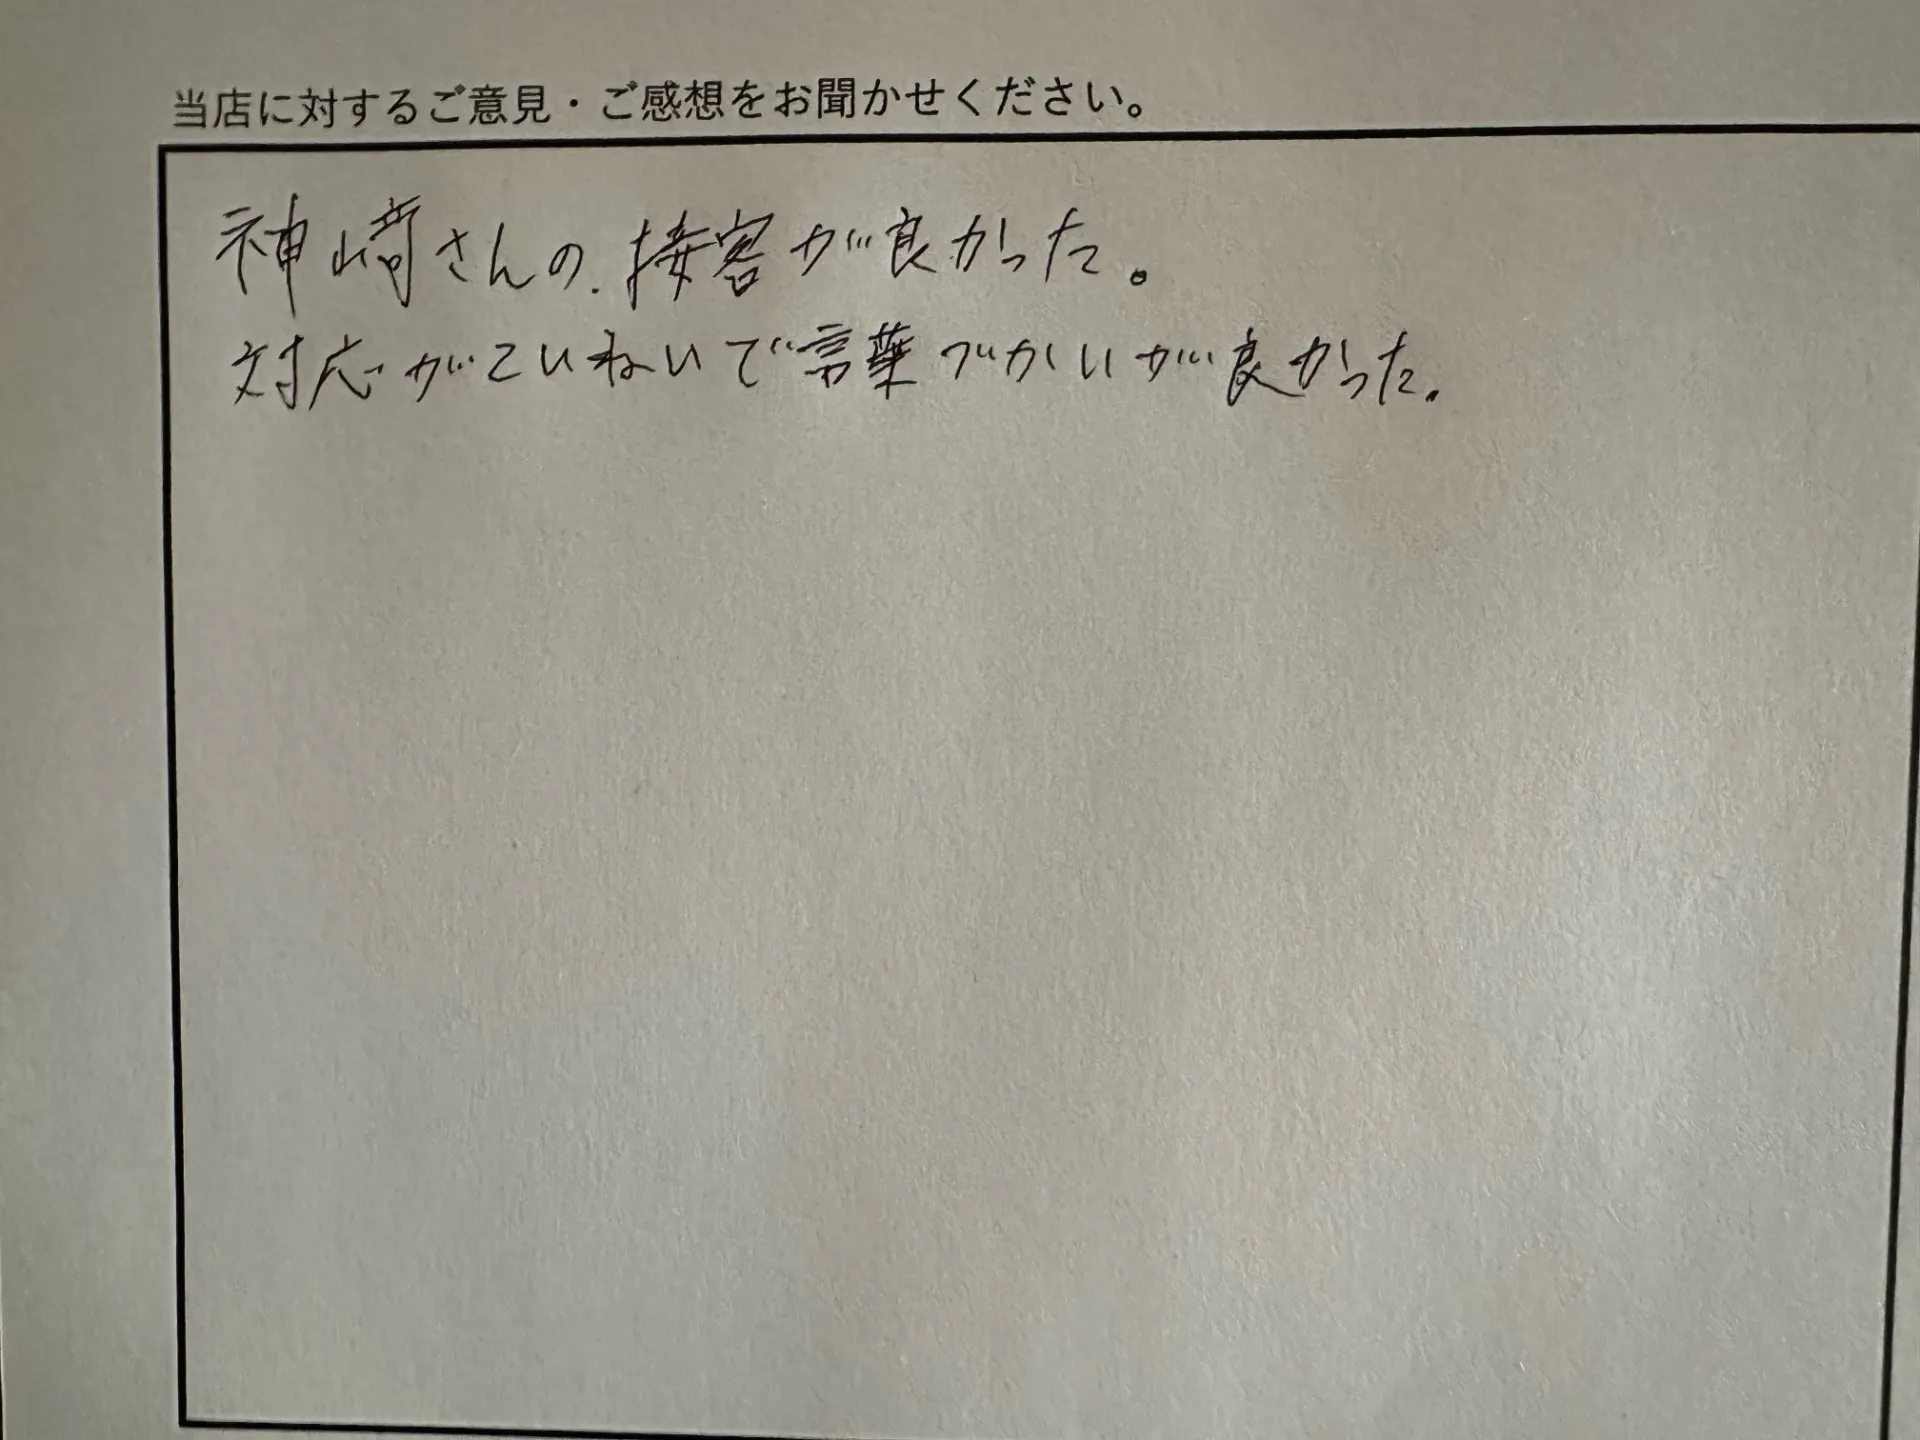 当店に対するご意見・ご感想をお聞かせください。
神﨑さんの、接客が良かった。
対応がていねいで言葉づかいが良かった。